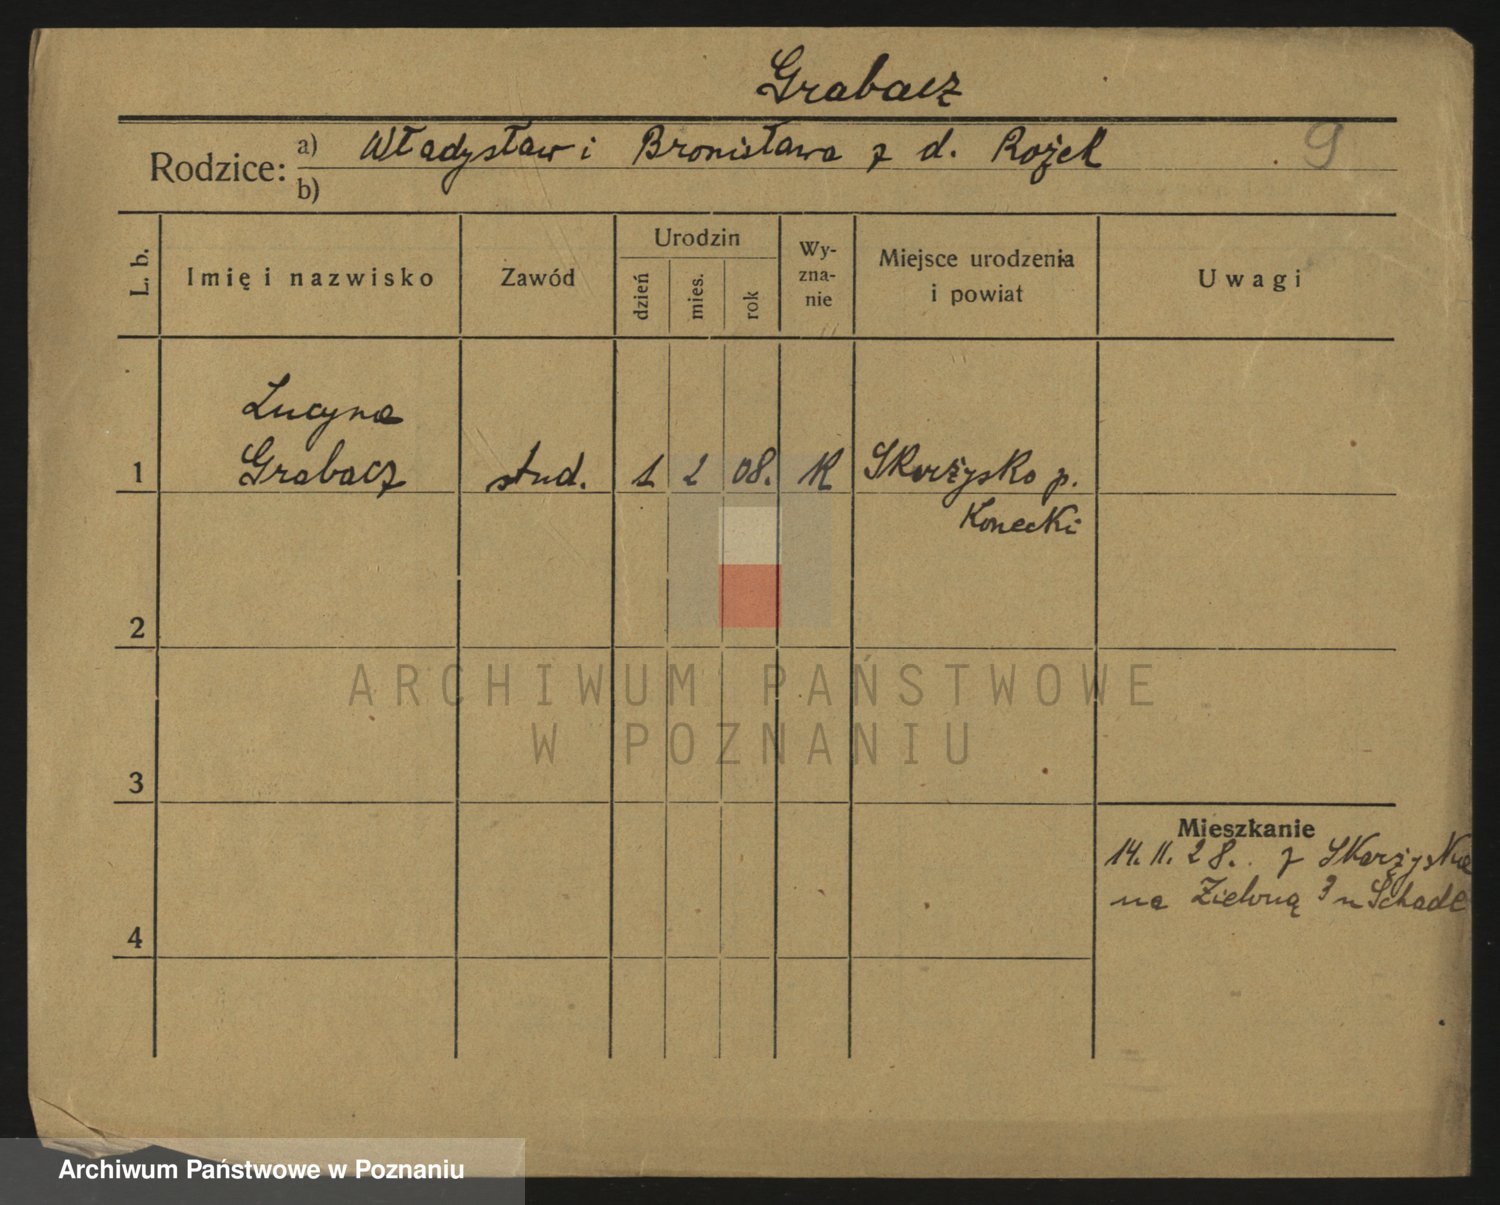 Grabacz
Rodzice: a) Władysław i Bronisława z d. Rożek 9
b)
L. b. Imię i nazwisko Zawód Urodzin dzień mies. rok Wy-zna-nie Miejsce urodzenia i powiat Uwagi
Lucyna
1 Grabacz stud. 1 2 08. K Skarżysko p.
Konecki
2
ARCHIWUM PAŃSTWOWE
W POZNANIU
3
Mieszkanie
14. 11. 28. z Skarżyska
na Zieloną 3 u Schade
4
Archiwum Państwowe w Poznaniu